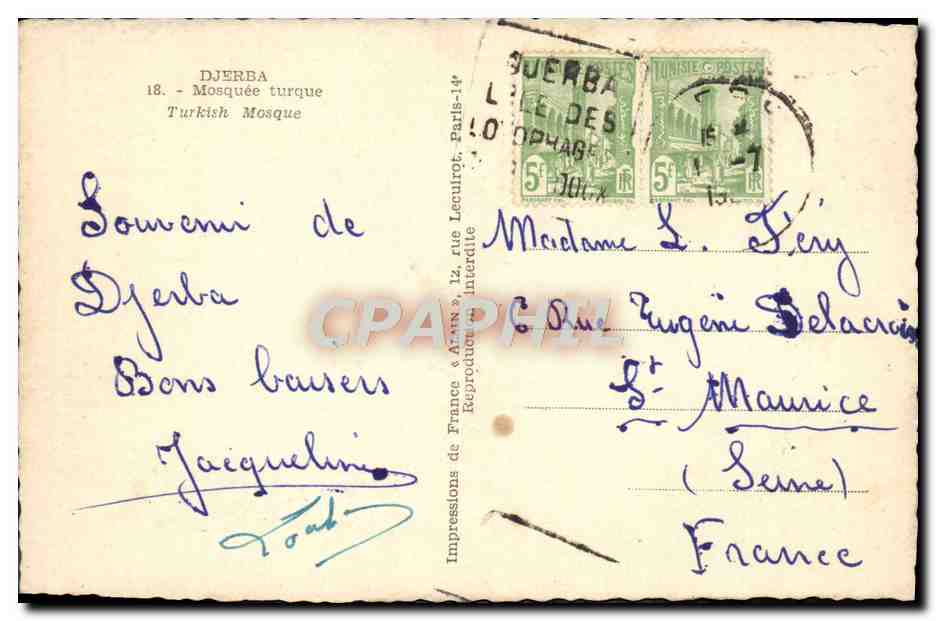 DJERBA
18. - Mosquée turque
Turkish Mosque
Souvenir de
Djerba
Bons baisers
Jacqueline
Impressions de France « ALAIN », 12, rue Lecuirot, Paris-14e
Reproduction interdite
DJERBA
L'ILE DES
LOTOPHAGES
POSTES
5F
RF
TUNISIE POSTES
5F
RF
Madame L. Féry
6 Rue Eugène Delacroix
St Maurice
(Seine)
France
CPAPHIL